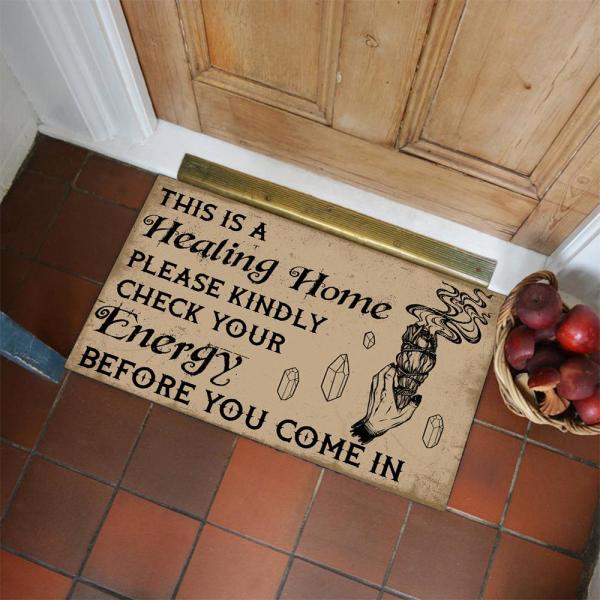 THIS IS A
Healing Home
PLEASE KINDLY
CHECK YOUR
Energy
BEFORE YOU COME IN